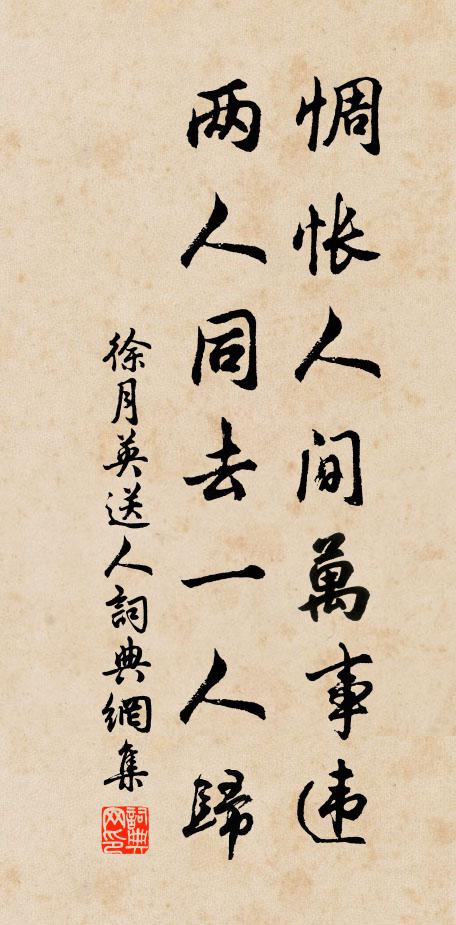 惆怅人间萬事违
两人同去一人歸
徐月英送人詞典網集
詞典网印